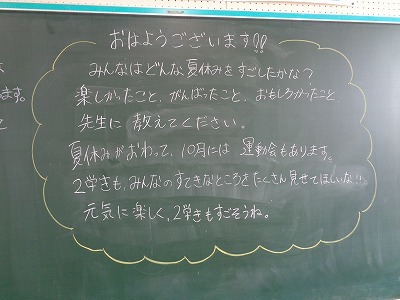 おはようございます!!
みんなはどんな夏休みをすごしたかな?
楽しかったこと、がんばったこと、おもしろかったこと
先生に教えてください。
夏休みがおわって、10月には運動会もあります。
2学きも、みんなのすてきなところをたくさん見せてほしいな!!
元気に楽しく、2学きもすごそうね。
ます。
と